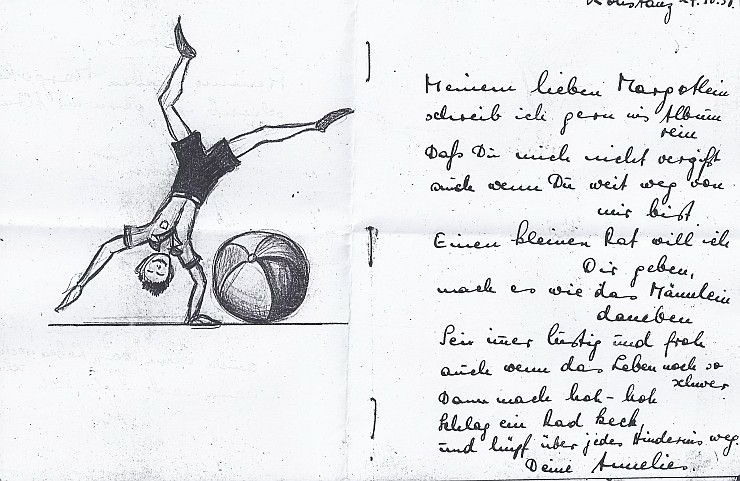 Konstanz
Meinem lieben Margotlein
schreib ich gern ins Album
rein
Daß Du mich nicht vergißt
auch wenn Du weit weg von
mir bist
Einen kleinen Rat will ich
Dir geben,
mach es wie das Männlein
daneben
Sei immer lustig und froh
auch wenn das Leben noch so
schwer
Dann mach hoh-hoh
Schlag ein Rad keck,
und hüpf über jedes Hindernis weg.
Deine Annelies.